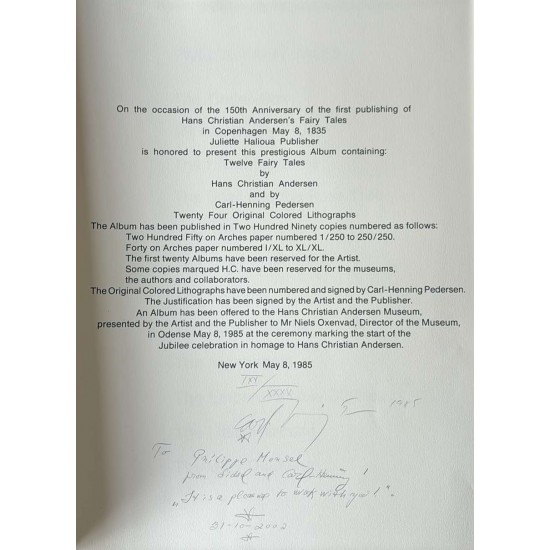 On the occasion of the 150th Anniversary of the first publishing of
Hans Christian Andersen's Fairy Tales
in Copenhagen May 8, 1835
Juliette Halioua Publisher
is honored to present this prestigious Album containing:
Twelve Fairy Tales
by
Hans Christian Andersen
and by
Carl-Henning Pedersen
Twenty Four Original Colored Lithographs
The Album has been published in Two Hundred Ninety copies numbered as follows:
Two Hundred Fifty on Arches paper numbered 1/250 to 250/250.
Forty on Arches paper numbered I/XL to XL/XL.
The first twenty Albums have been reserved for the Artist.
Some copies marqued H.C. have been reserved for the museums,
the authors and collaborators.
The Original Colored Lithographs have been numbered and signed by Carl-Henning Pedersen.
The Justification has been signed by the Artist and the Publisher.
An Album has been offered to the Hans Christian Andersen Museum,
presented by the Artist and the Publisher to Mr Niels Oxenvad, Director of the Museum,
in Odense May 8, 1985 at the ceremony marking the start of the
Jubilee celebration in homage to Hans Christian Andersen.
New York May 8, 1985
1985
To Philippe Monsel
from Sidsel and Carl-Henning!
"It is a pleasure to work with you!".
31-10-2002